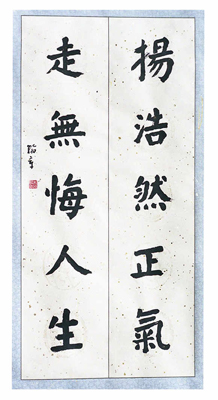 揚浩然正氣
走無悔人生